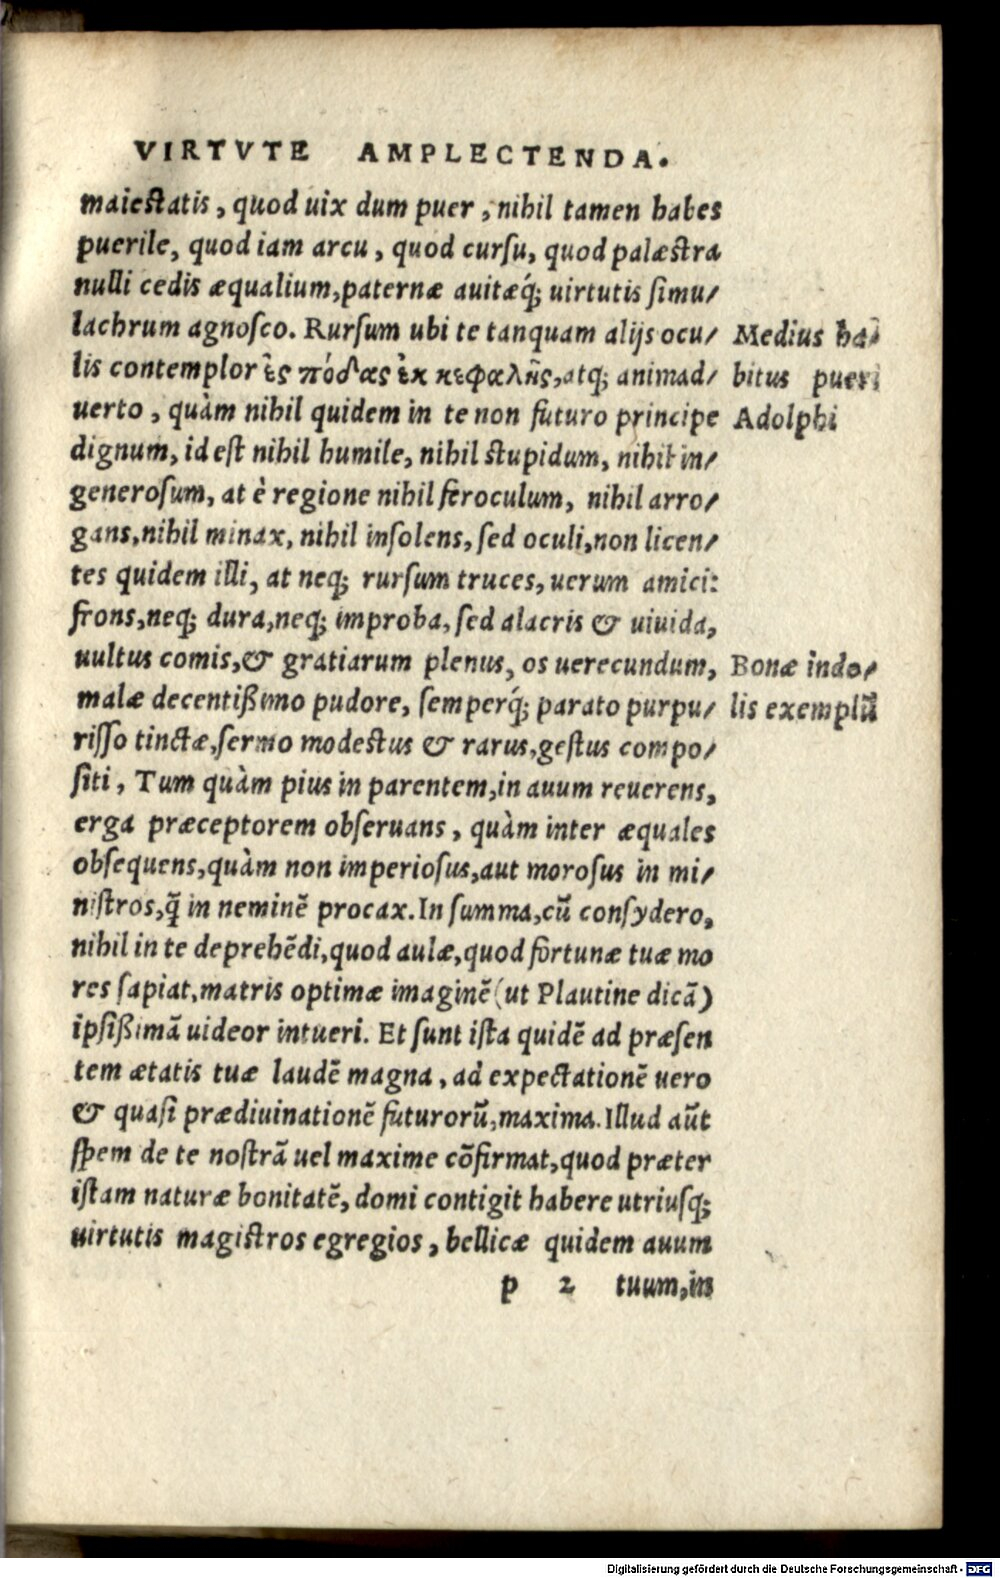 VIRTVTE AMPLECTENDA.
maiestatis, quod uix dum puer, nihil tamen habes
puerile, quod iam arcu, quod cursu, quod palæstra
nulli cedis æqualium, paternæ auitæq́; uirtutis simu/
lachrum agnosco. Rursum ubi te tanquam alijs ocu/
Medius ha/
lis contemplor ἐς πόδας ἐκ κεφαλῆς, atq; animad/
bitus pueri
uerto, quàm nihil quidem in te non futuro principe
Adolphi
dignum, id est nihil humile, nihil stupidum, nihil in/
generosum, at è regione nihil feroculum, nihil arro/
gans, nihil minax, nihil insolens, sed oculi, non licen/
tes quidem illi, at neq; rursum truces, uerum amici:
frons, neq; dura, neq; improba, sed alacris & uiuida,
uultus comis, & gratiarum plenus, os uerecundum,
Bonæ indo/
malæ decentißimo pudore, semperq́; parato purpu/
lis exemplū
risso tinctæ, sermo modestus & rarus, gestus compo/
siti, Tum quàm pius in parentem, in auum reuerens,
erga præceptorem obseruans, quàm inter æquales
obsequens, quàm non imperiosus, aut morosus in mi/
nistros, q̃ in neminē procax. In summa, cū consydero,
nihil in te deprehēdi, quod aulæ, quod fortunæ tuæ mo
res sapiat, matris optimæ imaginē (ut Plautine dicā)
ipsißimā uideor intueri. Et sunt ista quidē ad præsen
tem ætatis tuæ laudē magna, ad expectationē uero
& quasi prædiuinationē futurorū, maxima. Illud aūt
spem de te nostrā uel maxime cōfirmat, quod præter
istam naturæ bonitatē, domi contigit habere utriusq;
uirtutis magistros egregios, bellicæ quidem auum
p 2 tuum, in
Digitalisierung gefördert durch die Deutsche Forschungsgemeinschaft - DFG